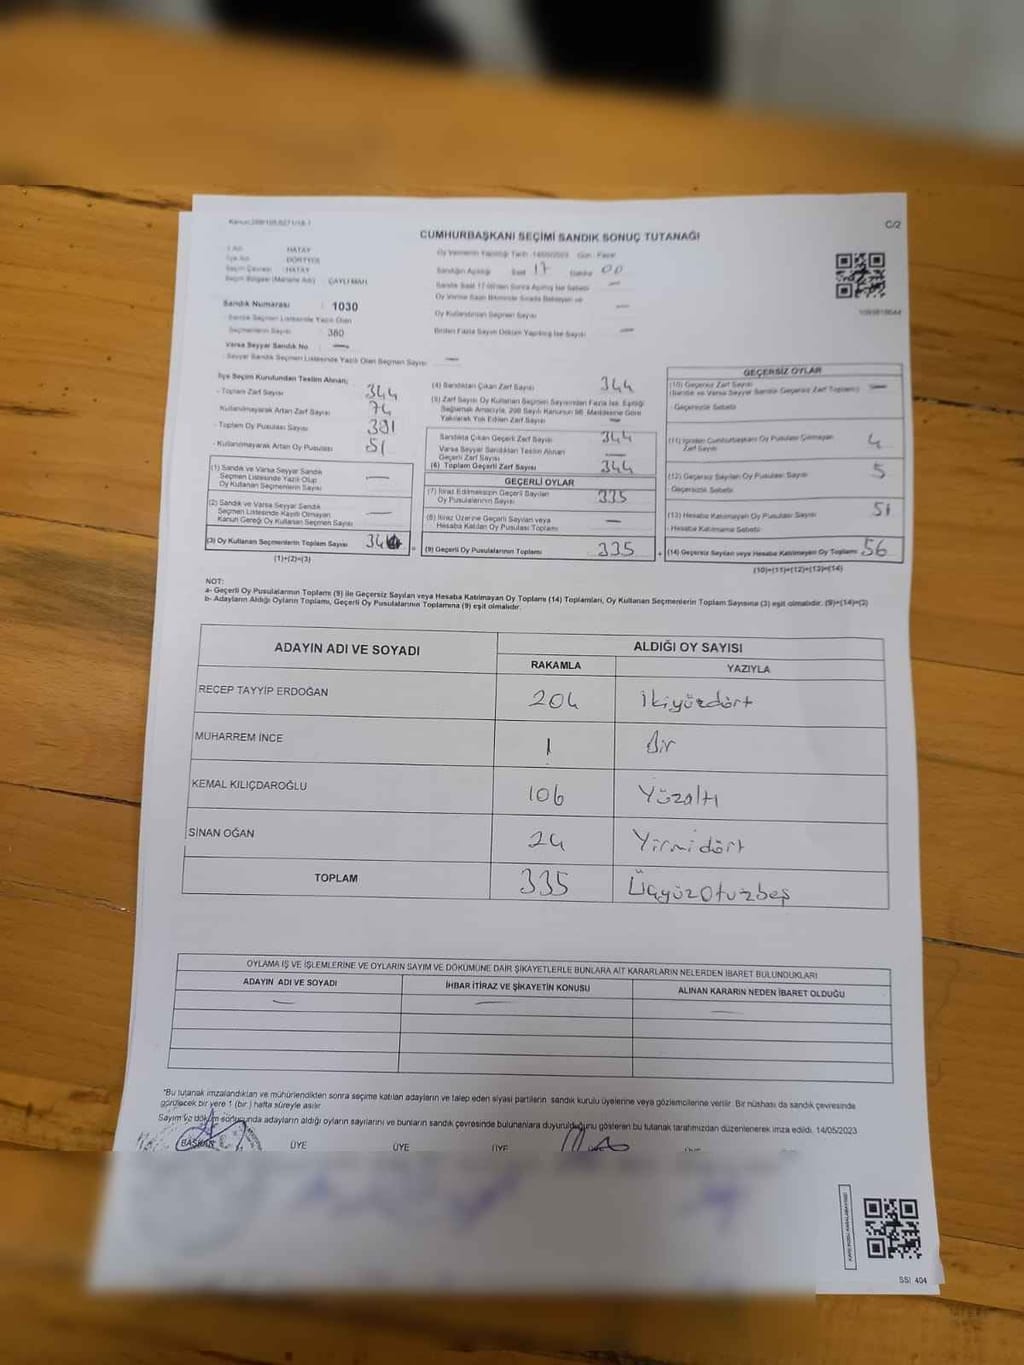 C/2
CUMHURBAŞKANI SEÇİMİ SANDIK SONUÇ TUTANAĞI
HATAY
DÖRTYOL
HATAY
ÇAYLI MAH.
Oy Vermenin Yapıldığı Tarih: 14/05/2023 Gün: Pazar
Sandığın Açıldığı Saat 17 Dakika 00
Sandık Saat 17:00'den Sonra Açılmış İse Sebebi
Oy Kullandırılan Seçmen Sayısı
Birden Fazla Sayım Döküm Yapılmış İse Sayısı
Sandık Numarası : 1030
Sandık Seçmen Listesinde Yazılı Olan
Seçmenlerin Sayısı 380
Varsa Seyyar Sandık No
Seyyar Sandık Seçmen Listesinde Yazılı Olan Seçmen Sayısı
İlçe Seçim Kurulundan Teslim Alınan;
- Toplam Zarf Sayısı 344
Kullanılmayarak Artan Zarf Sayısı 74
- Toplam Oy Pusulası Sayısı 391
- Kullanılmayarak Artan Oy Pusulası 51
(1) Sandık ve Varsa Seyyar Sandık
Seçmen Listesinde Yazılı Olup
Oy Kullanan Seçmenlerin Sayısı
(2) Sandık ve Varsa Seyyar Sandık
Seçmen Listesinde Kayıtlı Olmayan
Kanun Gereği Oy Kullanan Seçmen Sayısı
(3) Oy Kullanan Seçmenlerin Toplam Sayısı 344
(1)+(2)=(3)
(4) Sandıktan Çıkan Zarf Sayısı 344
(5) Zarf Sayısı Oy Kullanan Seçmen Sayısından Fazla İse, Eşitliği
Sağlamak Amacıyla, 298 Sayılı Kanunun 98. Maddesine Göre
Yakılarak Yok Edilen Zarf Sayısı
Sandıkta Çıkan Geçerli Zarf Sayısı 344
Varsa Seyyar Sandıktan Teslim Alınan
Geçerli Zarf Sayısı
(6) Toplam Geçerli Zarf Sayısı 344
GEÇERLİ OYLAR
(7) İtiraz Edilmeksizin Geçerli Sayılan
Oy Pusulalarının Sayısı 335
(8) İtiraz Üzerine Geçerli Sayılan veya
Hesaba Katılan Oy Pusulası Toplamı
(9) Geçerli Oy Pusulalarının Toplamı 335
GEÇERSİZ OYLAR
(10) Geçersiz Zarf Sayısı
(Sandık ve Varsa Seyyar Sandık Geçersiz Zarf Toplamı)
- Geçersizlik Sebebi
(11) İçinden Cumhurbaşkanı Oy Pusulası Çıkmayan
Zarf Sayısı 4
(12) Geçersiz Sayılan Oy Pusulası Sayısı 5
- Geçersizlik Sebebi
(13) Hesaba Katılmayan Oy Pusulası Sayısı 51
- Hesaba Katılmama Sebebi
(14) Geçersiz Sayılan veya Hesaba Katılmayan Oy Toplamı 56
(10)+(11)+(12)+(13)=(14)
NOT:
a- Geçerli Oy Pusulalarının Toplamı (9) ile Geçersiz Sayılan veya Hesaba Katılmayan Oy Toplamı (14) Toplamları, Oy Kullanan Seçmenlerin Toplam Sayısına (3) eşit olmalıdır. (9)+(14)=(3)
b- Adayların Aldığı Oyların Toplamı, Geçerli Oy Pusulalarının Toplamına (9) eşit olmalıdır.
ADAYIN ADI VE SOYADI ALDIĞI OY SAYISI
RAKAMLA YAZIYLA
RECEP TAYYİP ERDOĞAN 204 İkiyüzdört
MUHARREM İNCE 1 Bir
KEMAL KILIÇDAROĞLU 106 Yüzaltı
SİNAN OĞAN 24 Yirmidört
TOPLAM 335 Üçyüzotuzbeş
OYLAMA İŞ VE İŞLEMLERİNE VE OYLARIN SAYIM VE DÖKÜMÜNE DAİR ŞİKAYETLERLE BUNLARA AİT KARARLARIN NELERDEN İBARET BULUNDUKLARI
ADAYIN ADI VE SOYADI İHBAR İTİRAZ VE ŞİKAYETİN KONUSU ALINAN KARARIN NEDEN İBARET OLDUĞU
*Bu tutanak imzalandıktan ve mühürlendikten sonra seçime katılan adayların ve talep eden siyasi partilerin sandık kurulu üyelerine veya gözlemcilerine verilir. Bir nüshası da sandık çevresinde
görülecek bir yere 1 (bir) hafta süreyle asılır.
Sayım ve döküm sonucunda adayların aldığı oyların sayılarını ve bunların sandık çevresinde bulunanlara duyurulduğunu gösteren bu tutanak tarafımızdan düzenlenerek imza edildi. 14/05/2023
BAŞKAN ÜYE ÜYE ÜYE
SSI 404